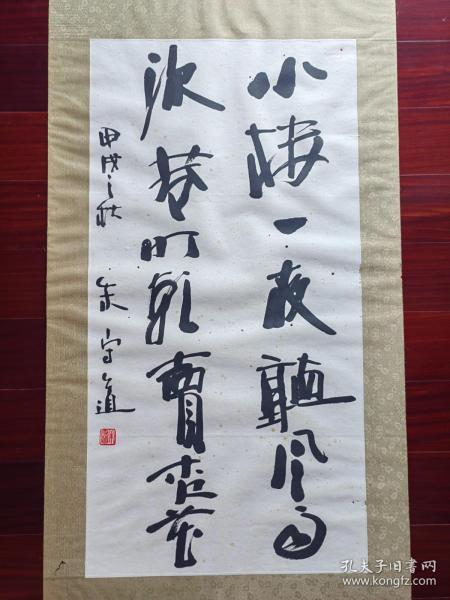 小楼一夜聽风雨
深巷明朝賣杏花
甲戌之秋 朱守道
孔夫子旧书网
www.kongfz.com